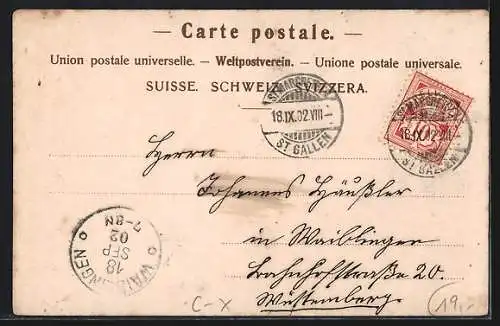 — Carte postale. —
Union postale universelle. — Weltpostverein. — Unione postale universale.
SUISSE. SCHWEIZ. SVIZZERA.
ST MARGRETHEN
18.IX.02.VIII—
ST GALLEN
ST MARGRETHEN
18.IX.02.VIII
ST GALLEN
Herrn
Johannes Häußler
in Waiblingen
Bahnhofstraße 20.
Württemberg.
WAIBLINGEN
18
SEP
02
7-8N
C-X
19.-